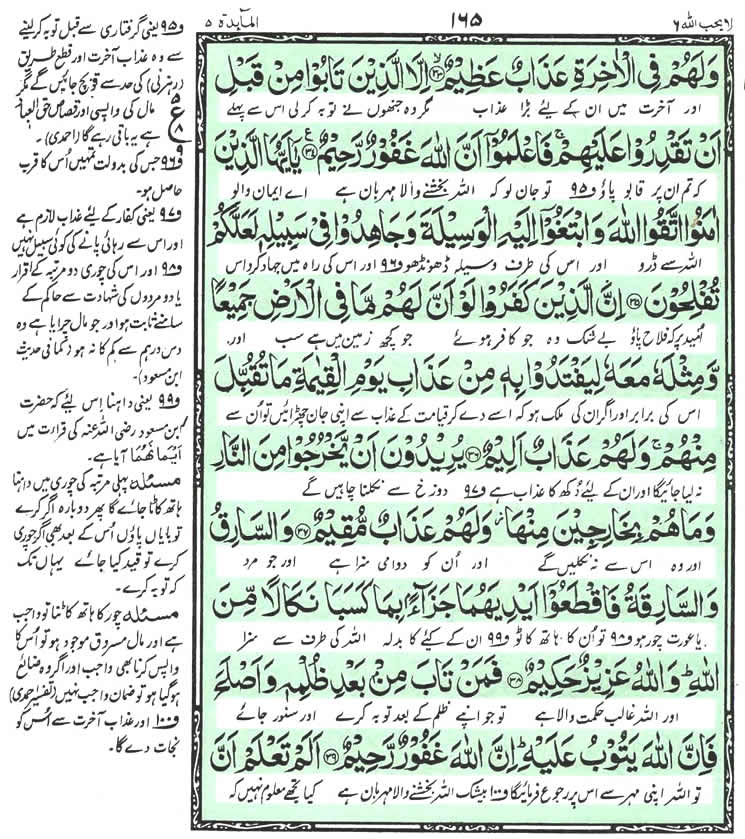 لا يحب الله ٦
١٦٥
المآئدة ٥
وَلَهُمْ فِي الْاٰخِرَةِ عَذَابٌ عَظِيْمٌ ۙ﴿۳۳﴾ اِلَّا الَّذِيْنَ تَابُوْا مِنْ قَبْلِ
اور آخرت میں ان کے لیئے بڑا عذاب گر وہ جنھوں نے توبہ کرلی اس سے پہلے
اَنْ تَقْدِرُوْا عَلَيْهِمْ ۚ فَاعْلَمُوْۤا اَنَّ اللّٰهَ غَفُوْرٌ رَّحِيْمٌ ﴿۳۴﴾ يٰۤاَيُّهَا الَّذِيْنَ
کہ تم ان پر قابو پاؤ و٩٥ تو جان لو کہ اللہ بخشنے والا مہربان ہے اے ایمان والو
اٰمَنُوا اتَّقُوا اللّٰهَ وَابْتَغُوْۤا اِلَيْهِ الْوَسِيْلَةَ وَجَاهِدُوْا فِيْ سَبِيْلِهٖ لَعَلَّكُمْ
اللہ سے ڈرو اور اس کی طرف وسیلہ ڈھونڈھو و٩٦ اور اس کی راہ میں جہاد کرو اس
تُفْلِحُوْنَ ﴿۳۵﴾ اِنَّ الَّذِيْنَ كَفَرُوْا لَوْ اَنَّ لَهُمْ مَّا فِي الْاَرْضِ جَمِيْعًا
اُمید پر کہ فلاح پاؤ بے شک وہ جو کافر ہوئے جو کچھ زمین میں ہے سب اور
وَّمِثْلَهٗ مَعَهٗ لِيَفْتَدُوْا بِهٖ مِنْ عَذَابِ يَوْمِ الْقِيٰمَةِ مَا تُقُبِّلَ
اس کی برابر اور اگر ان کی ملک ہو کہ اسے دے کر قیامت کے عذاب سے اپنی جان چھڑائیں تو اُن سے
مِنْهُمْ ۚ وَلَهُمْ عَذَابٌ اَلِيْمٌ ﴿۳۶﴾ يُرِيْدُوْنَ اَنْ يَّخْرُجُوْا مِنَ النَّارِ
نہ لیا جائیگا اور ان کے لیئے دُکھ کا عذاب ہے و٩٧ دوزخ سے نکلنا چاہیں گے
وَمَا هُمْ بِخٰرِجِيْنَ مِنْهَا ۫ وَلَهُمْ عَذَابٌ مُّقِيْمٌ ﴿۳۷﴾ وَالسَّارِقُ
اور وہ اس سے نہ نکلیں گے اور اُن کو دوامی سزا ہے اور جو مرد
وَالسَّارِقَةُ فَاقْطَعُوْۤا اَيْدِيَهُمَا جَزَآءًۢ بِمَا كَسَبَا نَكَالًا مِّنَ
یا عورت چور ہو و٩٨ تو اُن کا ہاتھ کاٹو و٩٩ ان کے کیئے کا بدلہ اللہ کی طرف سے سزا
اللّٰهِ ؕ وَاللّٰهُ عَزِيْزٌ حَكِيْمٌ ﴿۳۸﴾ فَمَنْ تَابَ مِنْۢ بَعْدِ ظُلْمِهٖ وَاَصْلَحَ
اور اللہ غالب حکمت والا ہے تو جو اپنے ظلم کے بعد توبہ کرے اور سنور جائے
فَاِنَّ اللّٰهَ يَتُوْبُ عَلَيْهِ ؕ اِنَّ اللّٰهَ غَفُوْرٌ رَّحِيْمٌ ﴿۳۹﴾ اَلَمْ تَعْلَمْ اَنَّ
تو اللہ اپنی مہر سے اس پر رجوع فرمائیگا و١٠٠ بیشک اللہ بخشنے والا مہربان ہے کیا تجھے معلوم نہیں کہ
و٩٥ یعنی گرفتاری سے قبل توبہ کرلینے
سے وہ عذاب آخرت اور قطع طریق
(رہزنی) کی حد سے تو بچ جائیں گے مگر
مال کی واپسی اور قصاص حق العباد
ہے یہ باقی رہے گا (احمدی)۔
و٩٦ جس کی بدولت تمہیں اُس کا قرب
حاصل ہو۔
و٩٧ یعنی کفار کے لئے عذاب لازم ہے
اور اس سے رہائی پانے کی کوئی سبیل نہیں
و٩٨ اور اس کی چوری دو مرتبہ کے اقرار
یا دو مردوں کی شہادت سے حاکم کے
سامنے ثابت ہو اور جو مال چرایا ہے وہ
دس درہم سے کم کا نہ ہو (کما فی حدیث
ابن مسعود)۔
و٩٩ یعنی داہنا اِس لیئے کہ حضرت
ابن مسعود رضی اللہ عنہ کی قراءت میں
اَيْمَانَهُمَا آیا ہے۔
مسئلہ پہلی مرتبہ کی چوری میں داہنا
ہاتھ کاٹا جائے گا پھر دوبارہ اگر کرے
تو بایاں پاؤں اُس کے بعد بھی اگر چوری
کرے تو قید کیا جائے یہاں تک
کہ توبہ کرے۔
مسئلہ چور کا ہاتھ کاٹنا تو واجب
ہے اور مال مسروق موجود ہو تو اُس کا
واپس کرنا بھی واجب اور اگر وہ ضائع
ہوگیا ہو تو ضمان واجب نہیں (تفسیر احمدی)
و١٠٠ اور عذاب آخرت سے اُس کو
نجات دے گا۔